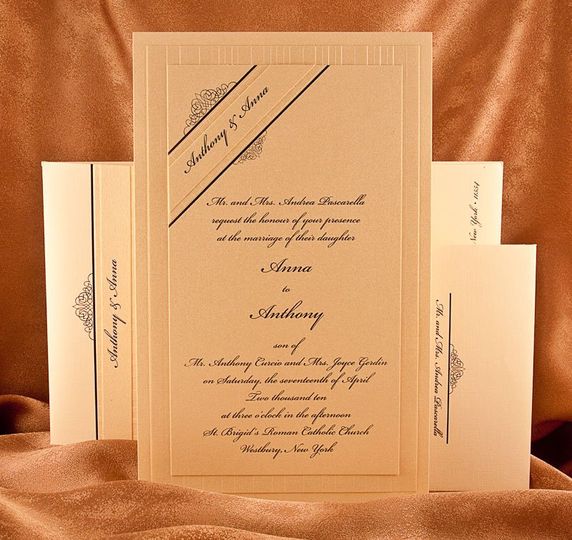 Anthony & Anna
Mr. and Mrs. Andrea Pascarella
request the honour of your presence
at the marriage of their daughter
Anna
to
Anthony
son of
Mr. Anthony Curcio and Mrs. Joyce Gerdin
on Saturday, the seventeenth of April
Two thousand ten
at three o'clock in the afternoon
St. Brigid's Roman Catholic Church
Westbury, New York
Anthony & Anna
New York • 11554
Mr. and Mrs. Andrea Pascarella